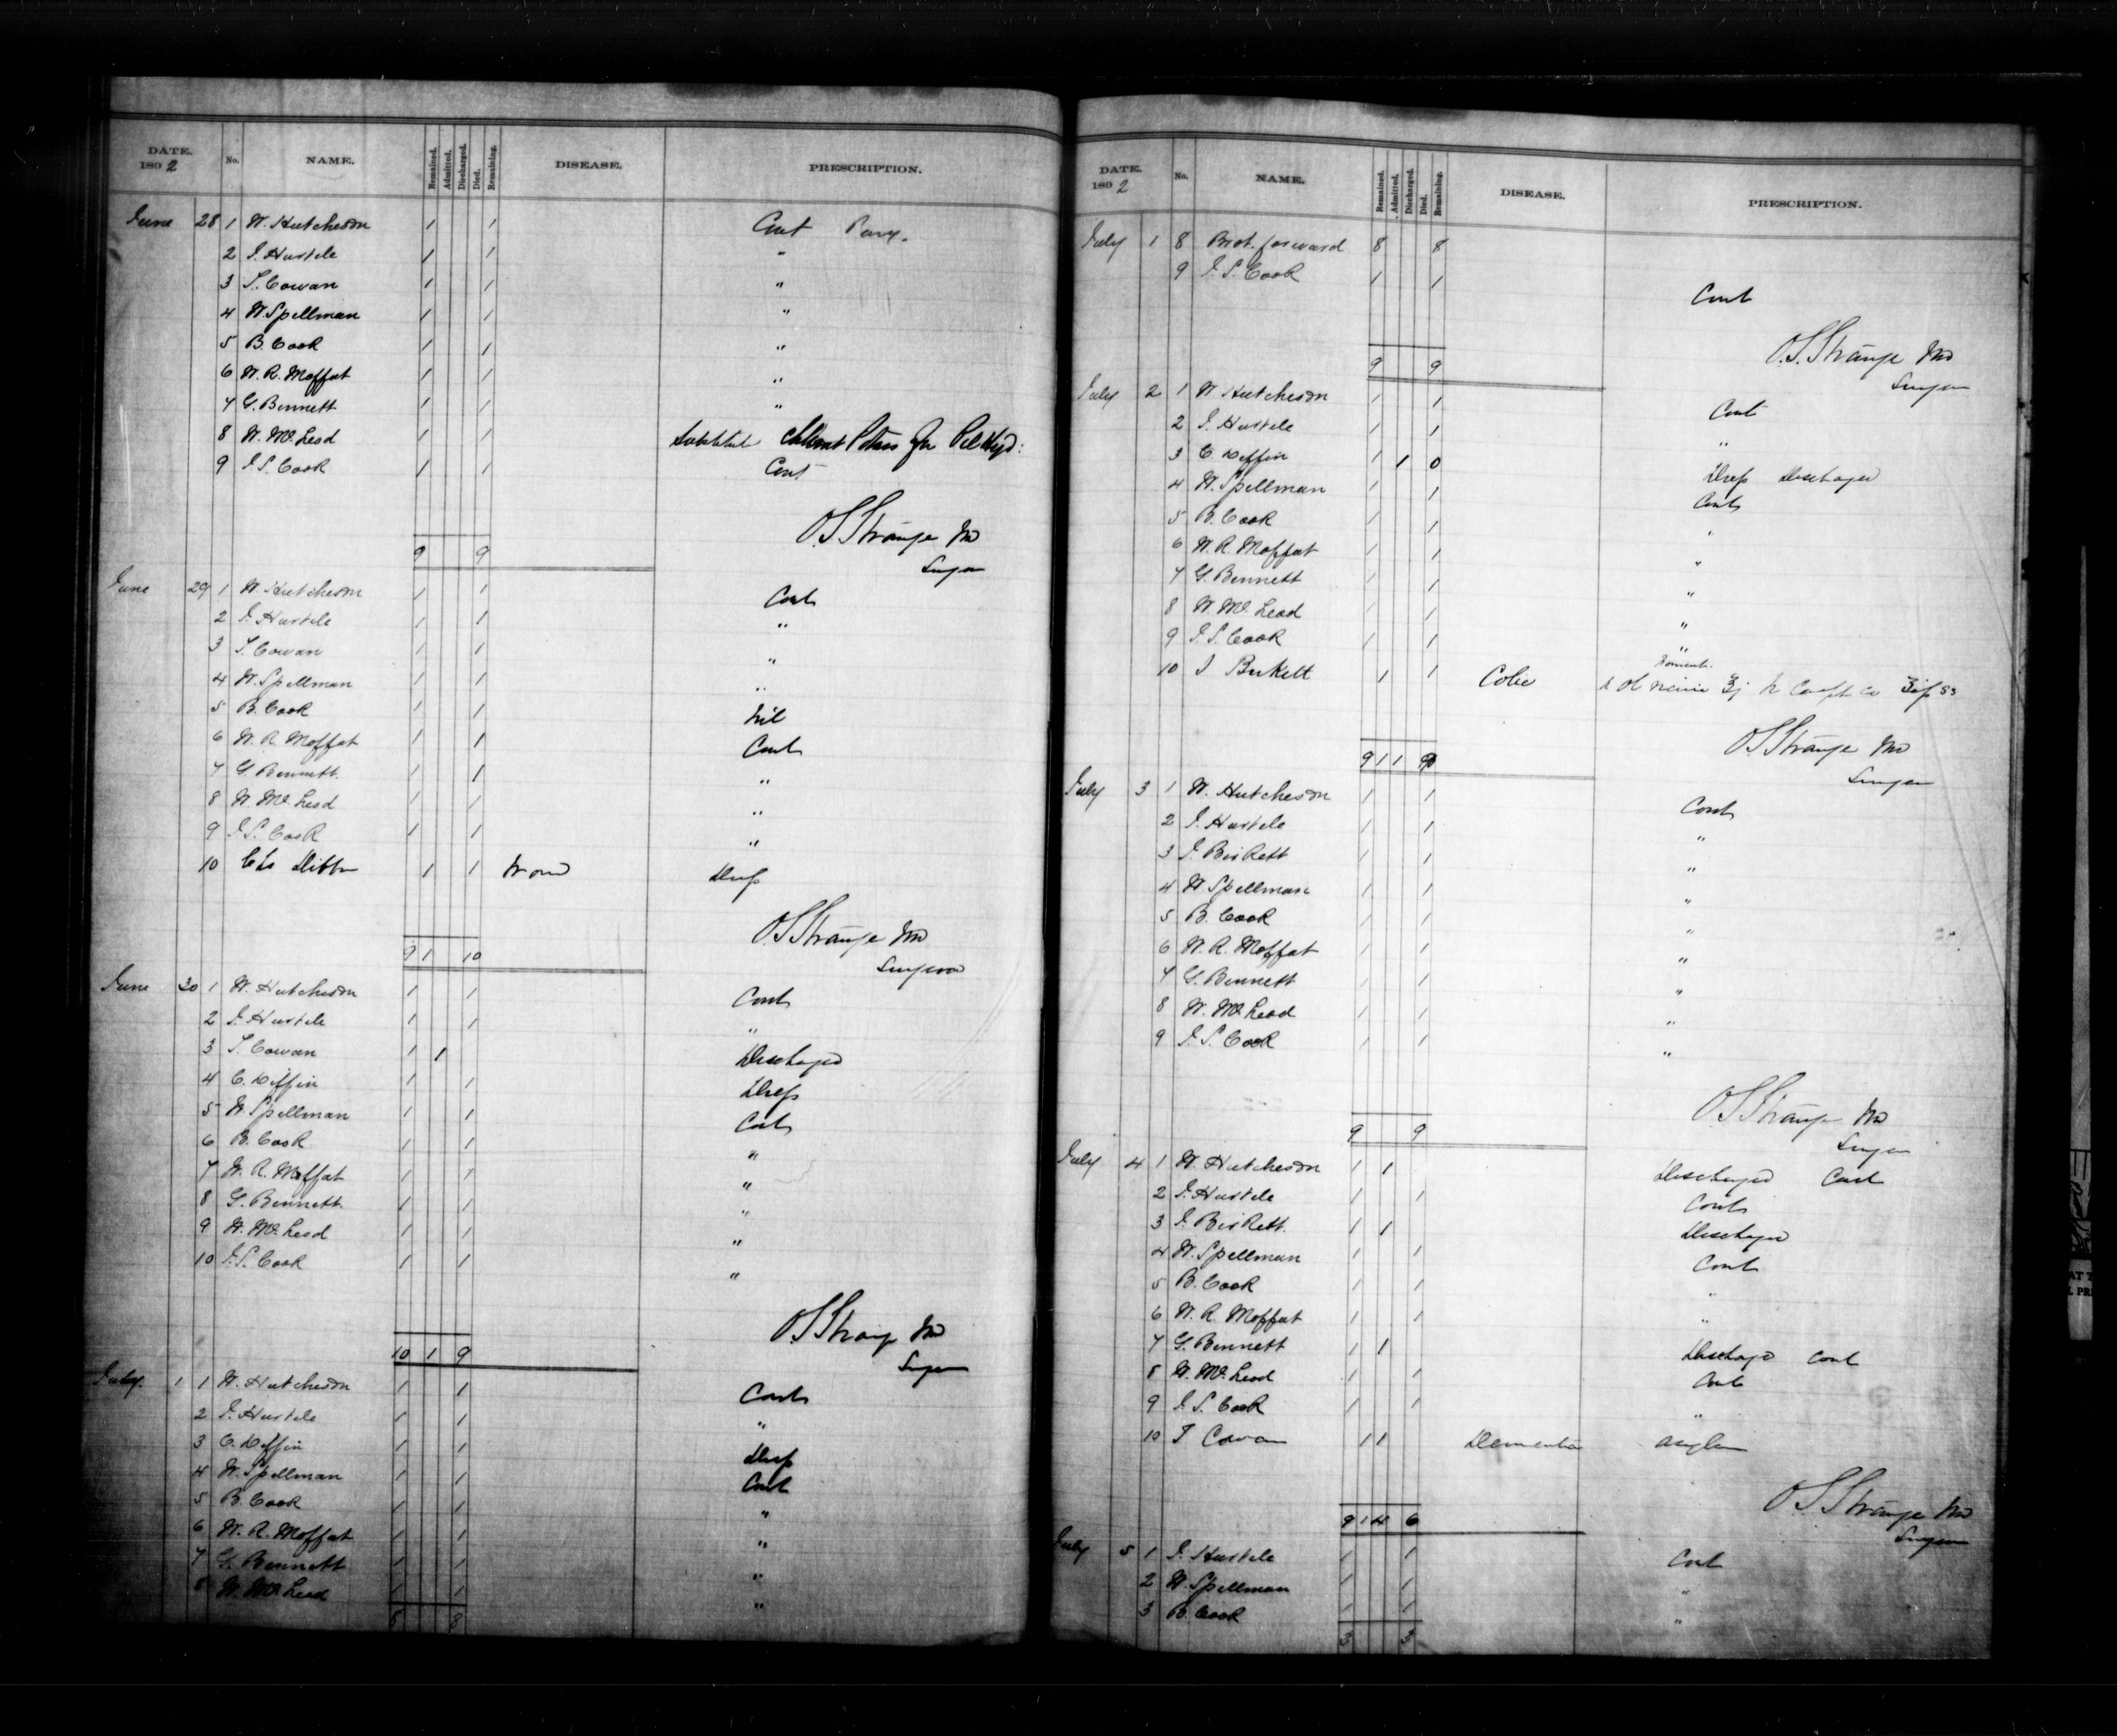 DATE. 1892 No. NAME. Remained. Admitted. Discharged. Died. Remaining. DISEASE. PRESCRIPTION.
June 28 1 W. Hutcheson 1 1 Cont
2 J. Hustele 1 1 "
3 T. Cowan 1 1 "
4 W. Spellman 1 1 "
5 B. Cook 1 1 "
6 W. R. Moffat 1 1 "
7 G. Bennett 1 1 "
8 W. McLeod 1 1
9 J. S. Cook 1 1 Cont
O. S. Strange MD
9 9 Surgeon
June 29 1 W. Hutcheson 1 1 Cont
2 J. Hustele 1 1 "
3 T. Cowan 1 1 "
4 W. Spellman 1 1 "
5 B. Cook 1 1 Nil
6 W. R. Moffat 1 1 Cont
7 G. Bennett 1 1 "
8 W. McLeod 1 1 "
9 J. S. Cook 1 1 "
10 1 1 Wound Dress
O. S. Strange MD
9 1 10 Surgeon
June 30 1 W. Hutcheson 1 1 Cont
2 J. Hustele 1 1 "
3 T. Cowan 1 1 Discharged
4 C. Diffin 1 1 Dress
5 W. Spellman 1 1 Cont
6 B. Cook 1 1 "
7 W. R. Moffat 1 1 "
8 G. Bennett 1 1 "
9 W. McLeod 1 1 "
10 J. S. Cook 1 1 "
O. S. Strange MD
10 1 9 Surgeon
July 1 1 W. Hutcheson 1 1 Cont
2 J. Hustele 1 1 "
3 C. Diffin 1 1 Dress
4 W. Spellman 1 1 Cont
5 B. Cook 1 1 "
6 W. R. Moffat 1 1 "
7 G. Bennett 1 1 "
8 W. McLeod 1 1 "
8 8
DATE. 1892 No. NAME. Remained. Admitted. Discharged. Died. Remaining. DISEASE. PRESCRIPTION.
July 1 8 Brot. forward 8 8
9 J. S. Cook 1 1 Cont
O. S. Strange MD
9 9 Surgeon
July 2 1 W Hutcheson 1 1 Cont
2 J. Hustele 1 1 "
3 C. Diffin 1 1 0 Dress Discharged
4 W. Spellman 1 1 Cont
5 B. Cook 1 1 "
6 W. R. Moffat 1 1 "
7 G. Bennett 1 1 "
8 W. McLeod 1 1 "
9 J. S. Cook 1 1 "
10 J Birkett 1 1 Colic
O. S. Strange MD
9 1 1 9 Surgeon
July 3 1 W. Hutcheson 1 1 Cont
2 J. Hustele 1 1 "
3 J. Birkett 1 1 "
4 W Spellman 1 1 "
5 B. Cook 1 1 "
6 W. R. Moffat 1 1 "
7 G. Bennett 1 1 "
8 W. McLeod 1 1 "
9 J. S. Cook 1 1 "
O. S. Strange MD
9 9 Surgeon
July 4 1 W. Hutcheson 1 1 Discharged Cont
2 J. Hustele 1 1 Cont
3 J. Birkett. 1 1 Discharged
4 W. Spellman 1 1 Cont
5 B. Cook 1 1 "
6 W. R. Moffat 1 1 "
7 G. Bennett 1 1 Discharged Cont
8 W. McLeod 1 1 Cont
9 J. S. Cook 1 1 "
10 T Cowan 1 1 Dementia Asylum
O. S. Strange MD
9 1 4 6 Surgeon
July 5 1 J. Hustele 1 1 Cont
2 W. Spellman 1 1 "
3 B. Cook 1 1 "
3 3